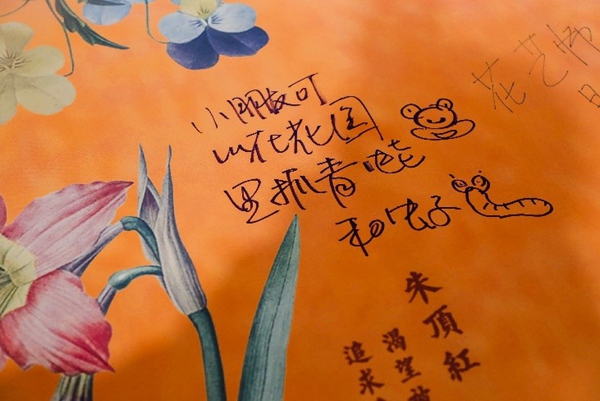 小朋友可
以在花园
里抓青蛙
和虫子
花艺师
朱頂紅
渴望被
追求